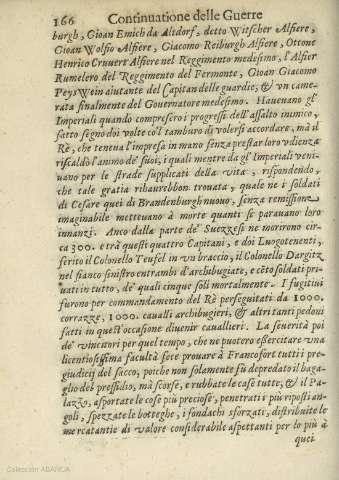 166 Continuatione delle Guerre
burgh, Gioan Emich da Altdorf, detto Witscher Alfiere,
Gioan Wolfio Alfiere, Giacomo Reiburgh Alfiere, Ottone
Henrico Cruuerr Alfiere nel Reggimento medesimo, l'Alfier
Rumelero del Reggimento del Fermonte, Gioan Giacomo
Peysvvein aiutante del Capitan delle guardie, & vn came-
rata finalmente del Gouernatore medesimo. Haueuano gl'
Imperiali quando compresero i progressi dell'assalto inimico,
fatto segno doi volte co'l tamburo di volersi accordare, mà il
Rè, che teneua l'impresa in mano senza prestar loro vdienza
riscaldò l'animo de' suoi, i quali mentre da gl'Imperiali veni-
uano per le strade supplicati della vita, rispondendo,
che tale gratia ribaurebbon trouata, quale ne i soldati
di Cesare quei di Brandenburgh nuouo, senza remissione
imaginabile metteuano à morte quanti se parauano loro
innanzi. Anco dalla parte de' Suezzesi ne morirono cir-
ca 300. e trà questi quattro Capitani, e doi Luogotenenti,
ferito il Colonello Teufel in vn braccio, il Colonello Dargitz
nel fianco sinistro entrambi d'archibugiate, e cẽto soldati pri-
uati in tutto, de' quali cinque soli mortalmente. I fugitiui
furono per commandamento del Rè perseguitati da 1000.
corrazze, 1000. caualli archibugieri, & altri tanti pedoni
fatti in quest'occasione diuenir cauallieri. La seuerità poi
de' vincitori per quel tempo, che ne puotero essercitare vna
licentiosissima facultà fece prouare à Francofort tutti i pre-
giudicij del sacco, poiche non solamente fù depredato il baga-
glio del pressidio, mà scorse, e rubbate le case tutte, & il Pa-
lazzo, asportate le cose più preciose, penetrati i più riposti an-
goli, spezzate le botteghe, i fondachi sforzati, distribuite le
mercatantie di valore considerabile aspettanti per lo più à
quei
Colección ABANCA